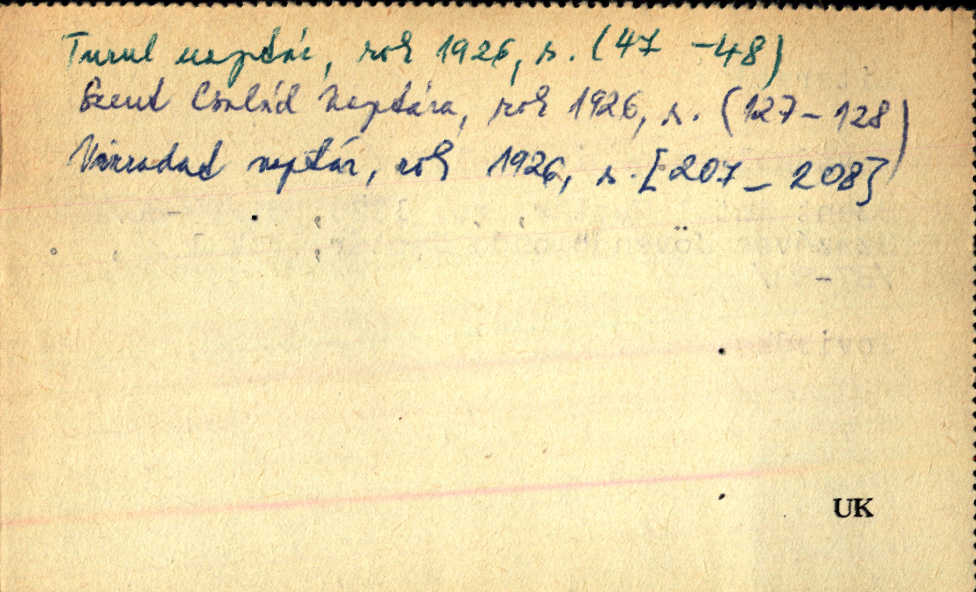 Turul naptár, rok 1926, s. (47 -48)
Szent Család Naptára, rok 1926, s. (127-128)
naptár, rok 1926, s. [207-208]
UK